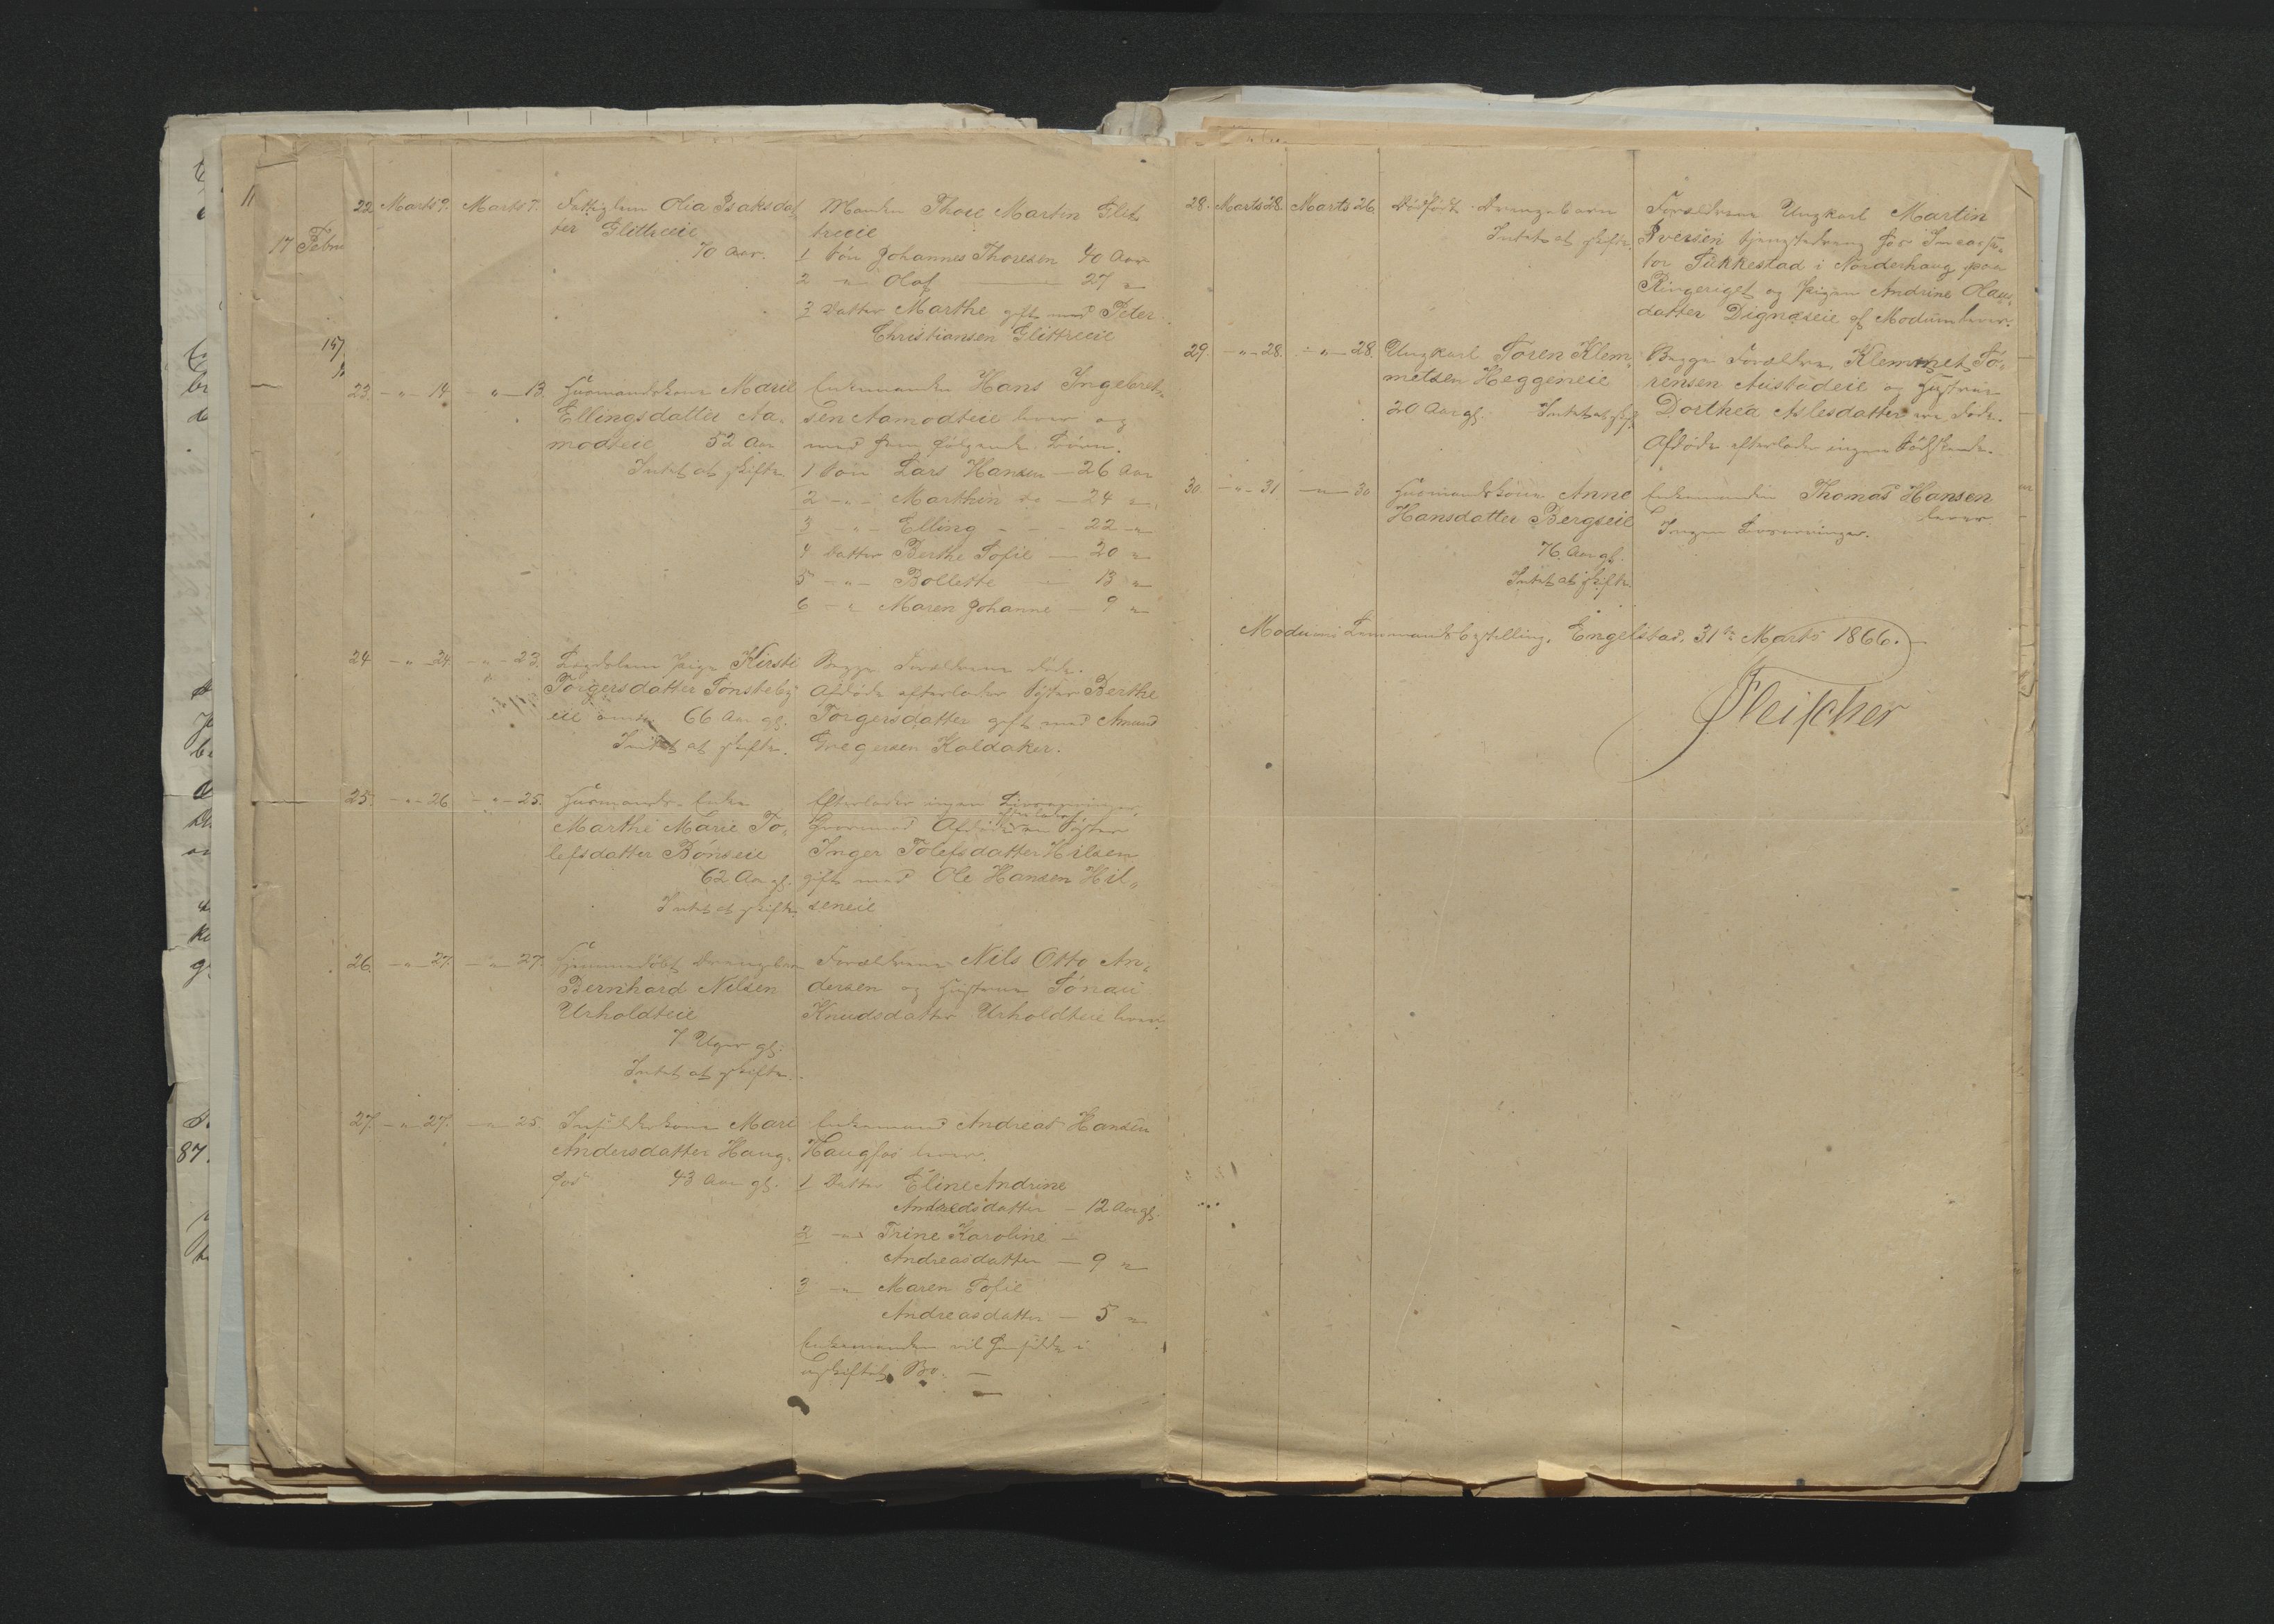 22 Marts 9. Marts 7. Fattiglem Olia Isaksdat
ter Glittreeie
70 Aar.
Manden Thore Martin Glit
treeie
1 Søn Johannes Thoresen 40 Aar
2 -"- Olaf 27 "
3 Datter Marthe gift med Peter
Christiansen Glittreeie
17 Febru
23. -"- 14 -"- 13. Huusmandskone Marie
Ellingsdatter Aa-
modteie 52 Aar
Intet at skifte
Enkemanden Hans Ingebret-
sen Aamodteie lever og
med ham følgende Børn.
1 Søn Lars Hansen - 26 Aar
2 -"- Marthin do - 24 "
3 " - Elling - - - 22 "
4 Datter Berthe Sofie - 20 "
5 -"- Bollette - 13 "
6 - " Maren Johanne - 9 "
24 -"- 24. -"- 23. Lægdslem Pige Kirsti
Torgersdatter Tonsteby
eie 66 Aar gl.
Intet at skifte.
Begge Forældrene døde.
Afdøde efterlader Søster Berthe
Torgersdatter gift med Amund
Gregersen Kaldaker.
25. -"- 26 -"- 25. Huusmands-Enke
Marthe Marie To-
lefsdatter Bönseie
62 Aar gl.
Intet at skifte
Efterlader ingen Livsarvinger,
hvorimod Afdøde efterlader en Søster
Inger Tolefsdatter Hilsen
gift med Ole Hansen Hil-
seneie
26. -"- 27. -"- 27. Hjemmedøbt Drengebarn
Bernhard Nilsen
Urholdteie
7 Uger gl.
Intet at skifte.
Forældrene Nils Otto An-
dersen og Hustrue Tönau
Knudsdatter Urholdteie lever.
27. -"- 27. -"- 25. Inderstkone Mari
Andersdatter Haug-
fos 43 Aar gl.
Enkemand Andreas Hansen
Haugfos lever.
1 Datter Eline Andrine
Andreasdatter - 12 Aar gl.
2 -"- Trine Karoline -
Andreasdatter - 9 "
3 -"- Maren Sofie
Andreasdatter - 5 "
Enkemanden vil hensidde i
uskiftet Bo. -
28. Marts 28. Marts 26. Dødfødt Drengebarn
Intet at skifte.
Forældrene Ungkarl Martin
Iversen tjenstedreng hos
Takkestad i Norderhoug paa
Ringeriget og Pigen Andrine Olaus-
datter Dignæseie af Modum lever.
29. -"- 28. -"- 28. Ungkarl Soren Klem-
metsen Heggeneie
20 Aar gl. Intet at skifte
Begge Forældrene Klemmet Sö-
rensen Austadeie og Hustrue
Dorthea Aslesdatter ere døde.
Afdøde efterlader ingen Sødskende.
30. -"- 31 -"- 30 Huusmandskone Anne
Hansdatter Bergseie
76 Aar gl.
Intet at skifte
Enkemanden Thomas Hansen
lever
Ingen Livsarvinger.
Modums Lensmandsbestilling, Engelstad, 31te Marts 1866.
Fleischer